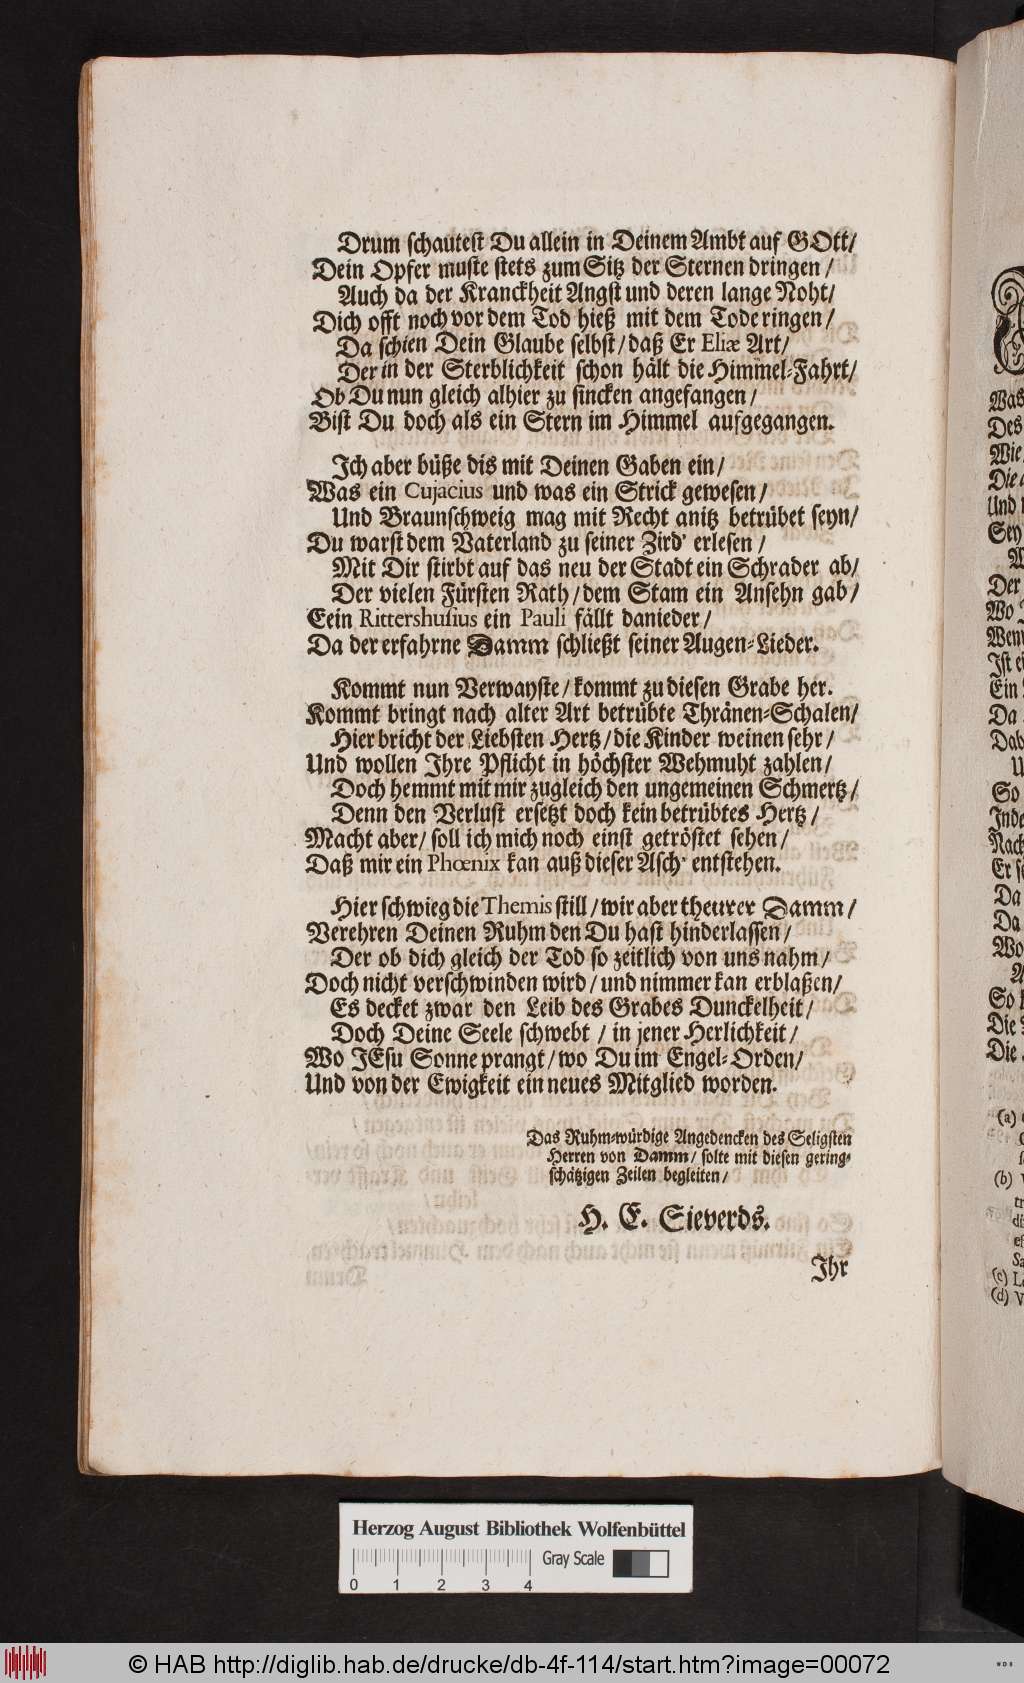 Drum schautest Du allein in Deinem Ambt auf GOtt/
Dein Opfer muste stets zum Sitz der Sternen dringen /
Auch da der Kranckheit Angst und deren lange Noht/
Dich offt noch vor dem Tod hieß mit dem Tode ringen /
Da schien Dein Glaube selbst / daß Er Eliæ Art/
Der in der Sterblichkeit schon hält die Himmel-Fahrt/
Ob Du nun gleich alhier zu sincken angefangen /
Bist Du doch als ein Stern im Himmel aufgegangen.
Ich aber büße dis mit Deinen Gaben ein /
Was ein Cujacius und was ein Strick gewesen /
Und Braunschweig mag mit Recht anitz betrübet seyn/
Du warst dem Vaterland zu seiner Zird' erlesen /
Mit Dir stirbt auf das neu der Stadt ein Schrader ab/
Der vielen Fürsten Rath / dem Stam ein Ansehn gab/
Eein Rittershusius ein Pauli fällt danieder /
Da der erfahrne Damm schließt seiner Augen-Lieder.
Kommt nun Verwayste / kommt zu diesen Grabe her.
Kommt bringt nach alter Art betrübte Thränen-Schalen/
Hier bricht der Liebsten Hertz / die Kinder weinen sehr /
Und wollen Ihre Pflicht in höchster Wehmuht zahlen /
Doch hemmt mit mir zugleich den ungemeinen Schmertz /
Denn den Verlust ersetzt doch kein betrübtes Hertz /
Macht aber / soll ich mich noch einst getröstet sehen /
Daß mir ein Phœnix kan auß dieser Asch' entstehen.
Hier schwieg die Themis still / wir aber theurer Damm /
Verehren Deinen Ruhm den Du hast hinderlassen /
Der ob dich gleich der Tod so zeitlich von uns nahm /
Doch nicht verschwinden wird / und nimmer kan erblaßen /
Es decket zwar den Leib des Grabes Dunckelheit /
Doch Deine Seele schwebt / in jener Herlichkeit /
Wo JEsu Sonne prangt / wo Du im Engel-Orden /
Und von der Ewigkeit ein neues Mitglied worden.
Das Ruhm-würdige Angedencken des Seligsten
Herren von Damm / solte mit diesen gering-
schätzigen Zeilen begleiten /
H. E. Sieverds.
Ihr
Was
Des
Wie
Die
Und
Sey
Der
Wo
Wen
Ist
Ein
Da
Dab
So
Inde
Nach
Er
Da
Da
Wo
So
Die
Die
(a)
(b)
(c)
(d)
Herzog August Bibliothek Wolfenbüttel
Gray Scale
0 1 2 3 4
© HAB http://diglib.hab.de/drucke/db-4f-114/start.htm?image=00072